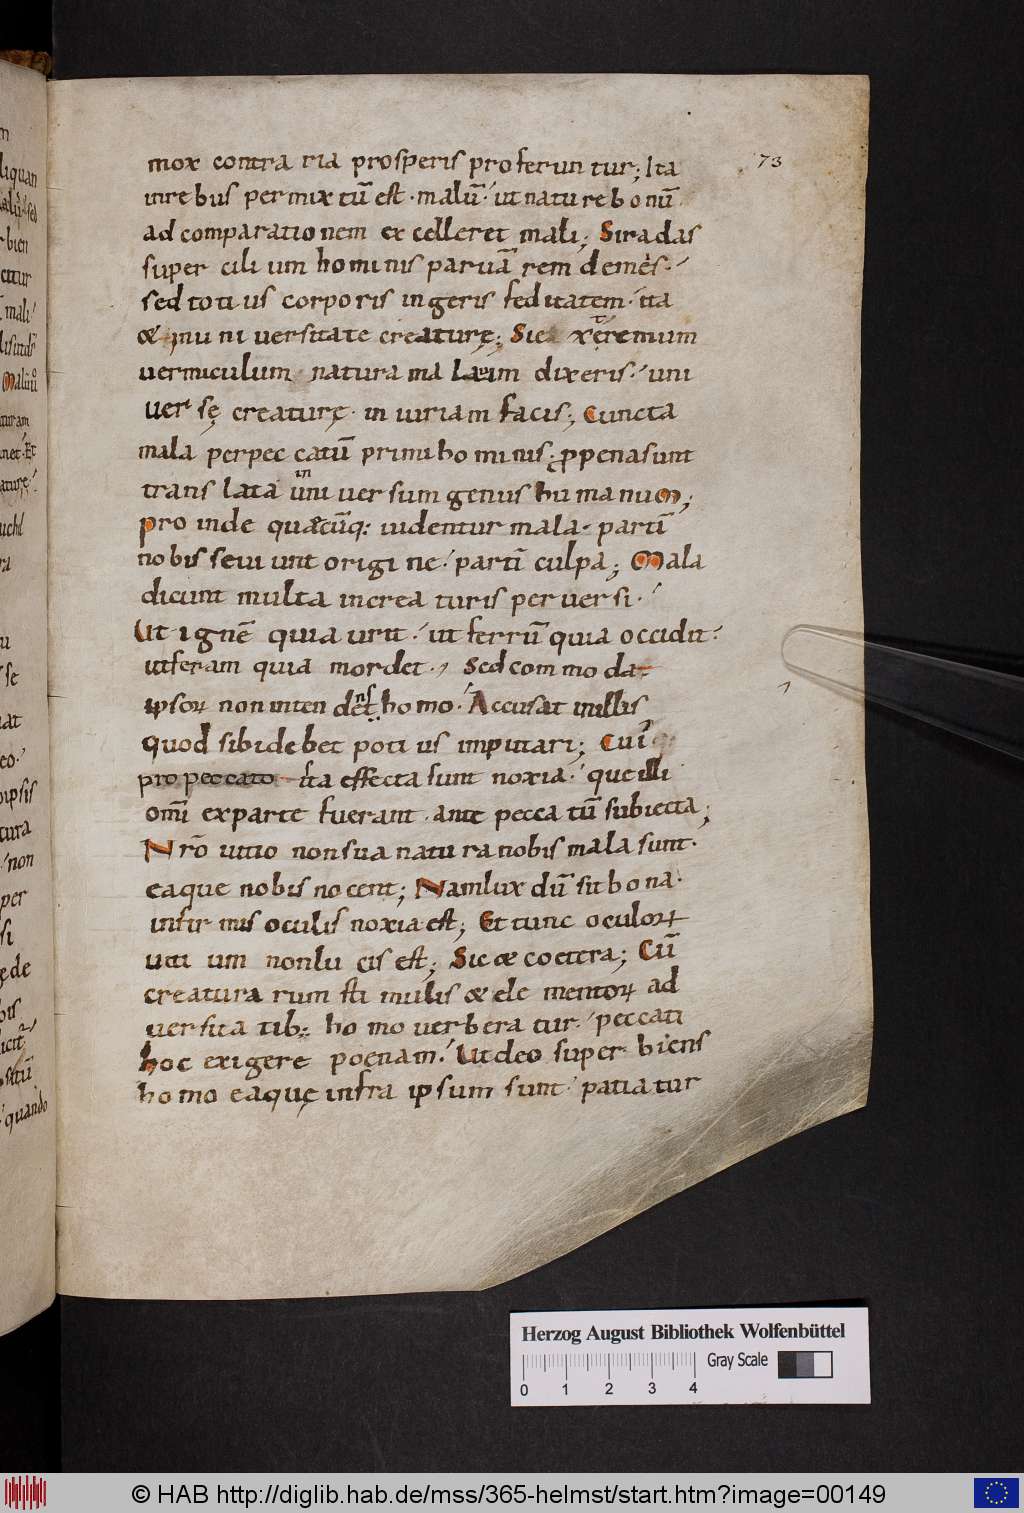 mox contraria prosperis proferuntur; Ita
73
inrebus permixtū est · malū · ut nature bonū
ad comparationem excelleret mali; Si radas
super cilium hominis paruā rem demes ·
sed totius corporis ingeris feditatem · ita
& inuniuersitate creaturę; Sic extremum
vermiculum natura malum dixeris · uni
uersę creaturę · iniuriam facis; Cuncta
mala perpeccatū primi hominis · ꝓpena sunt
translata in uniuersum genus humanum;
Proinde quęcūq: uidentur mala · partī
nobis seuiunt origine · partī culpa; Mala
dicunt multa increaturis peruersi ·
Ut ignē quia urit · ut ferrū quia occidit ·
ut feram quia mordet · Sed commoda
ipsoꝝ non intendens homo · Accusat in illis
quod sibi debet potius imputari; Cui
pro peccato ita effecta sunt noxia · que illi
omī exparte fuerant · ante peccatū subiecta;
Nr̄o uitio non sua natura nobis mala sunt ·
eaque nobis nocent; Nam lux dū sit bona ·
infirmis oculis noxia est; Et tunc oculoꝝ
uitium non lucis est; Sic & coetera; Cū
creaturarum stimulis & elementoꝝ ad
uersitatib: homo uerberatur · peccati
hoc exigere poenam · Ut deo superbiens
homo eaquę infra ipsum sunt · patiatur
Herzog August Bibliothek Wolfenbüttel
Gray Scale
0 1 2 3 4
© HAB http://diglib.hab.de/mss/365-helmst/start.htm?image=00149